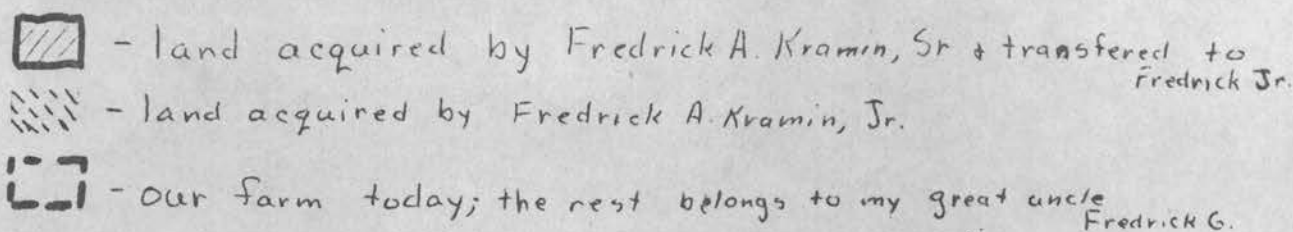 - land acquired by Fredrick A. Kramin, Sr & transfered to
Fredrick Jr.
- land acquired by Fredrick A. Kramin, Jr.
- our farm today; the rest belongs to my great uncle
Fredrick G.